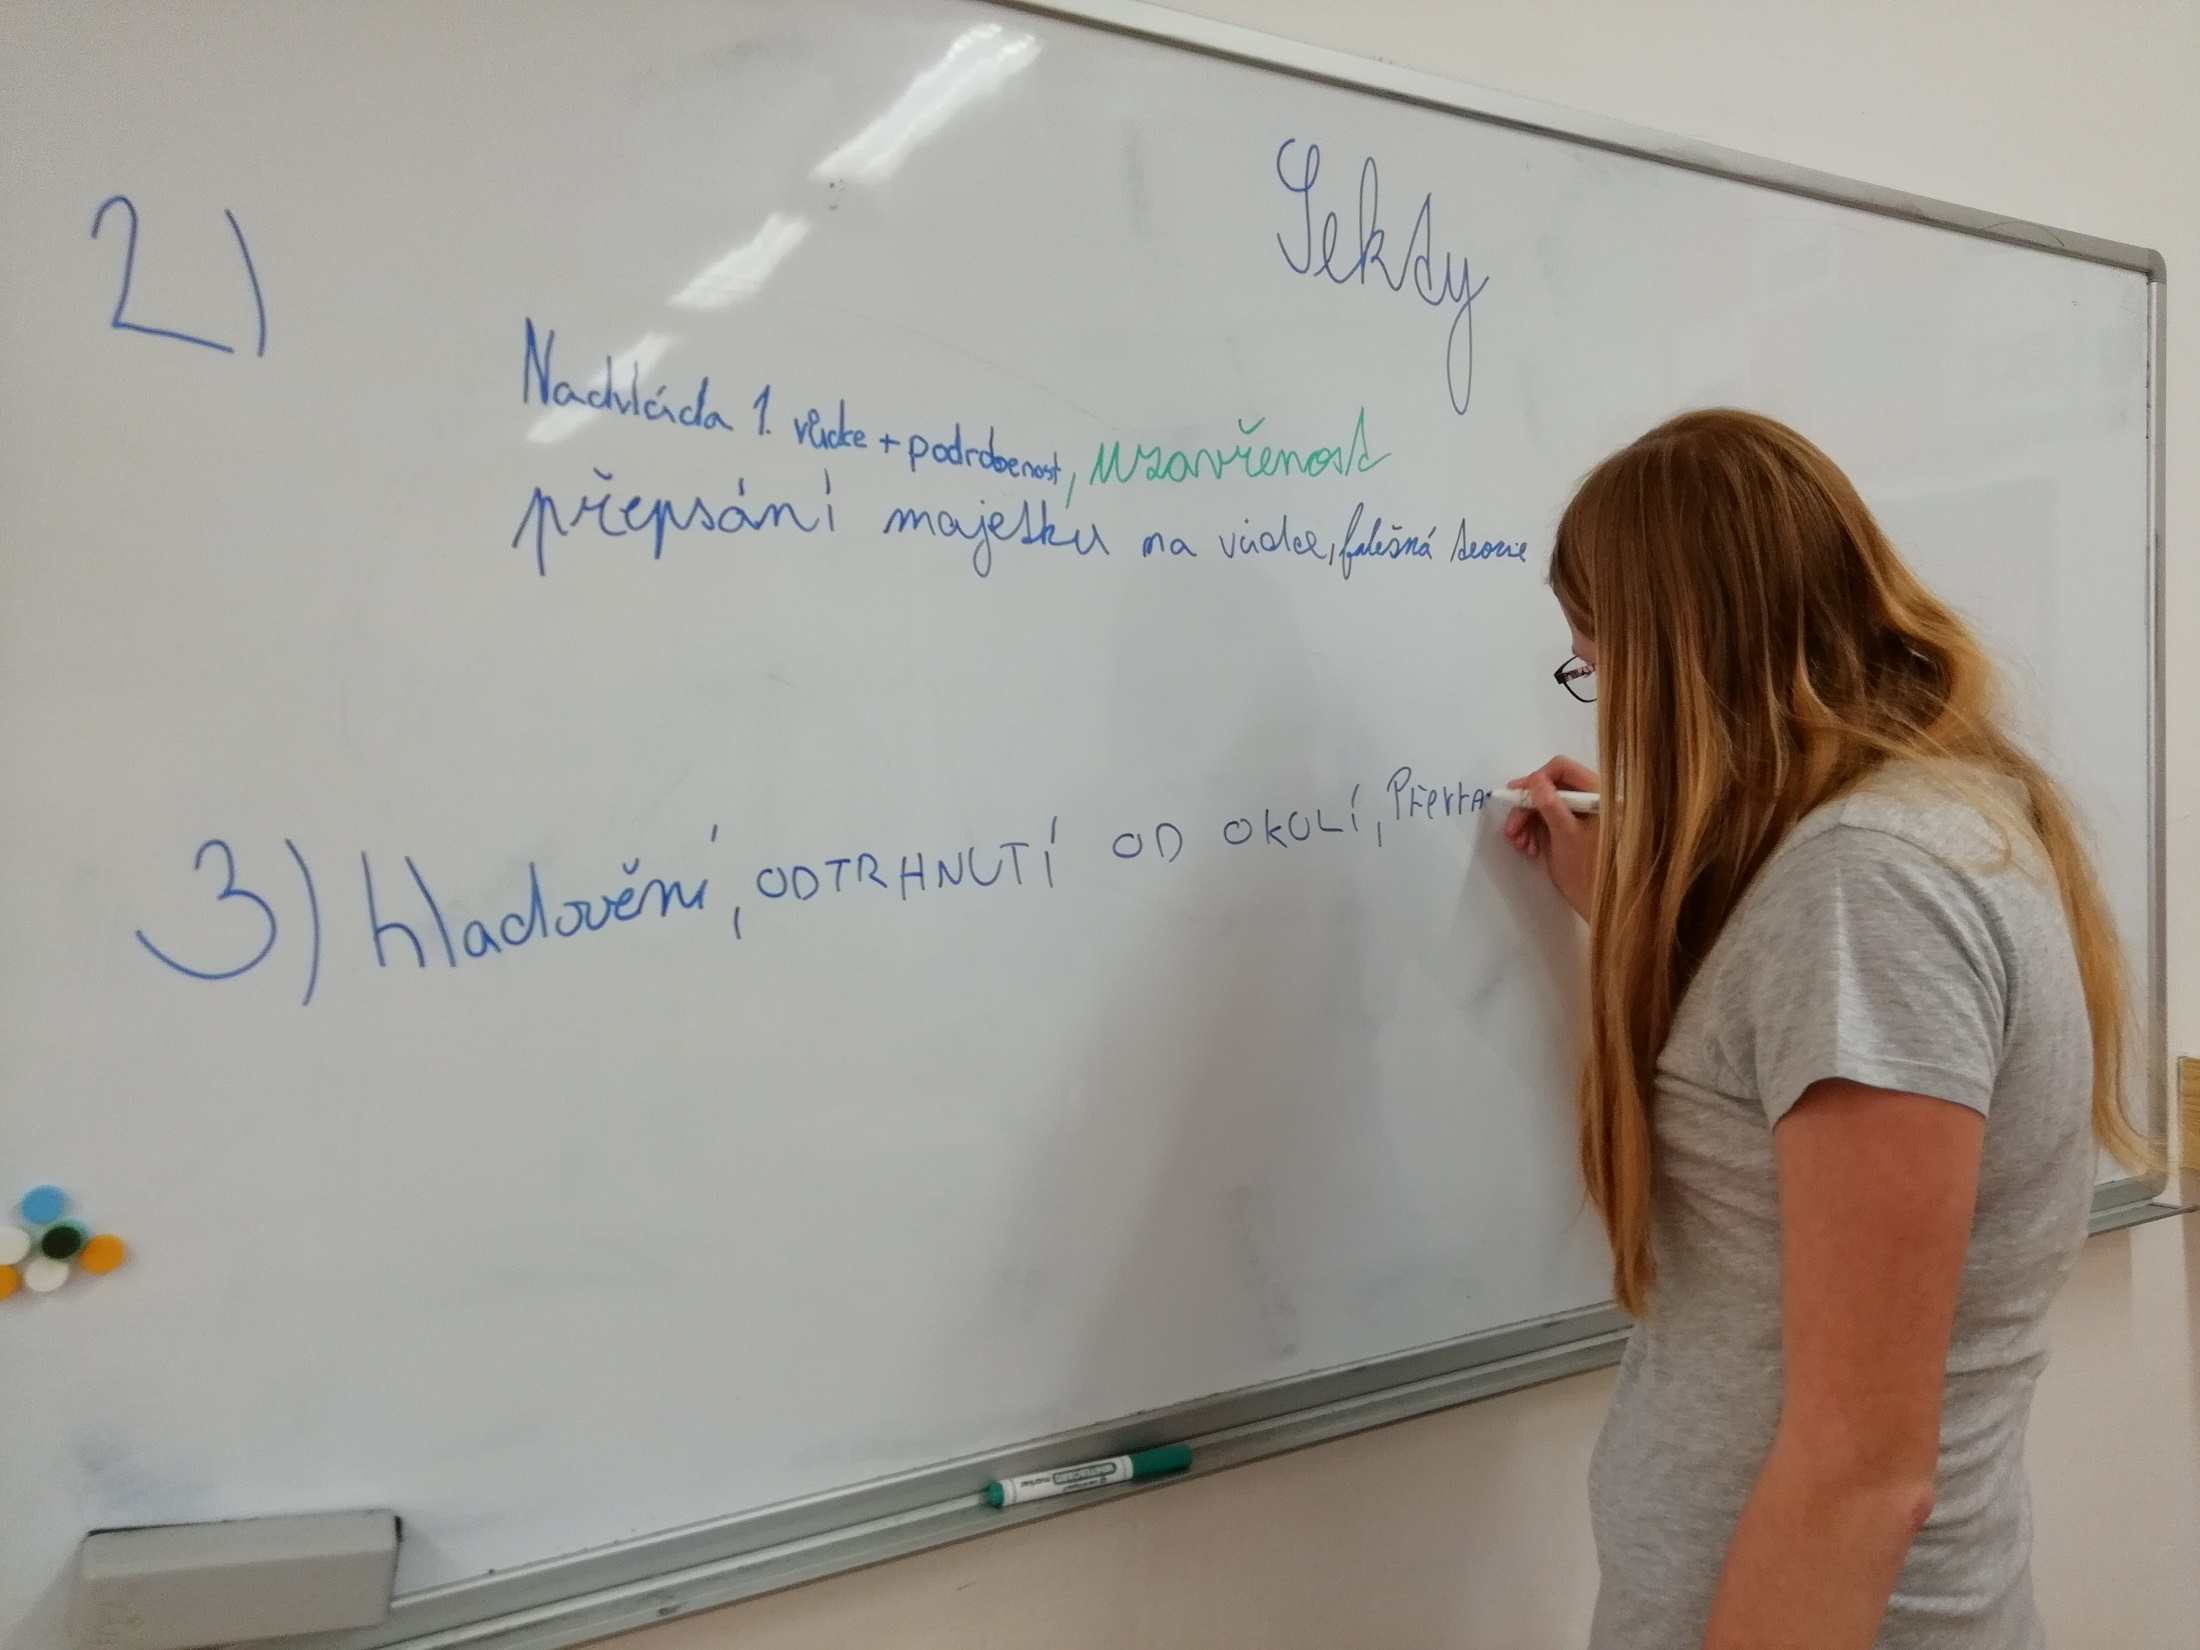 Sekty
2)
Nadvláda 1. vůdce + podrobenost, uzavřenost
přepsání majetku na vůdce, falešná teorie
3) hladovění, ODTRHNUTÍ OD OKOLÍ,